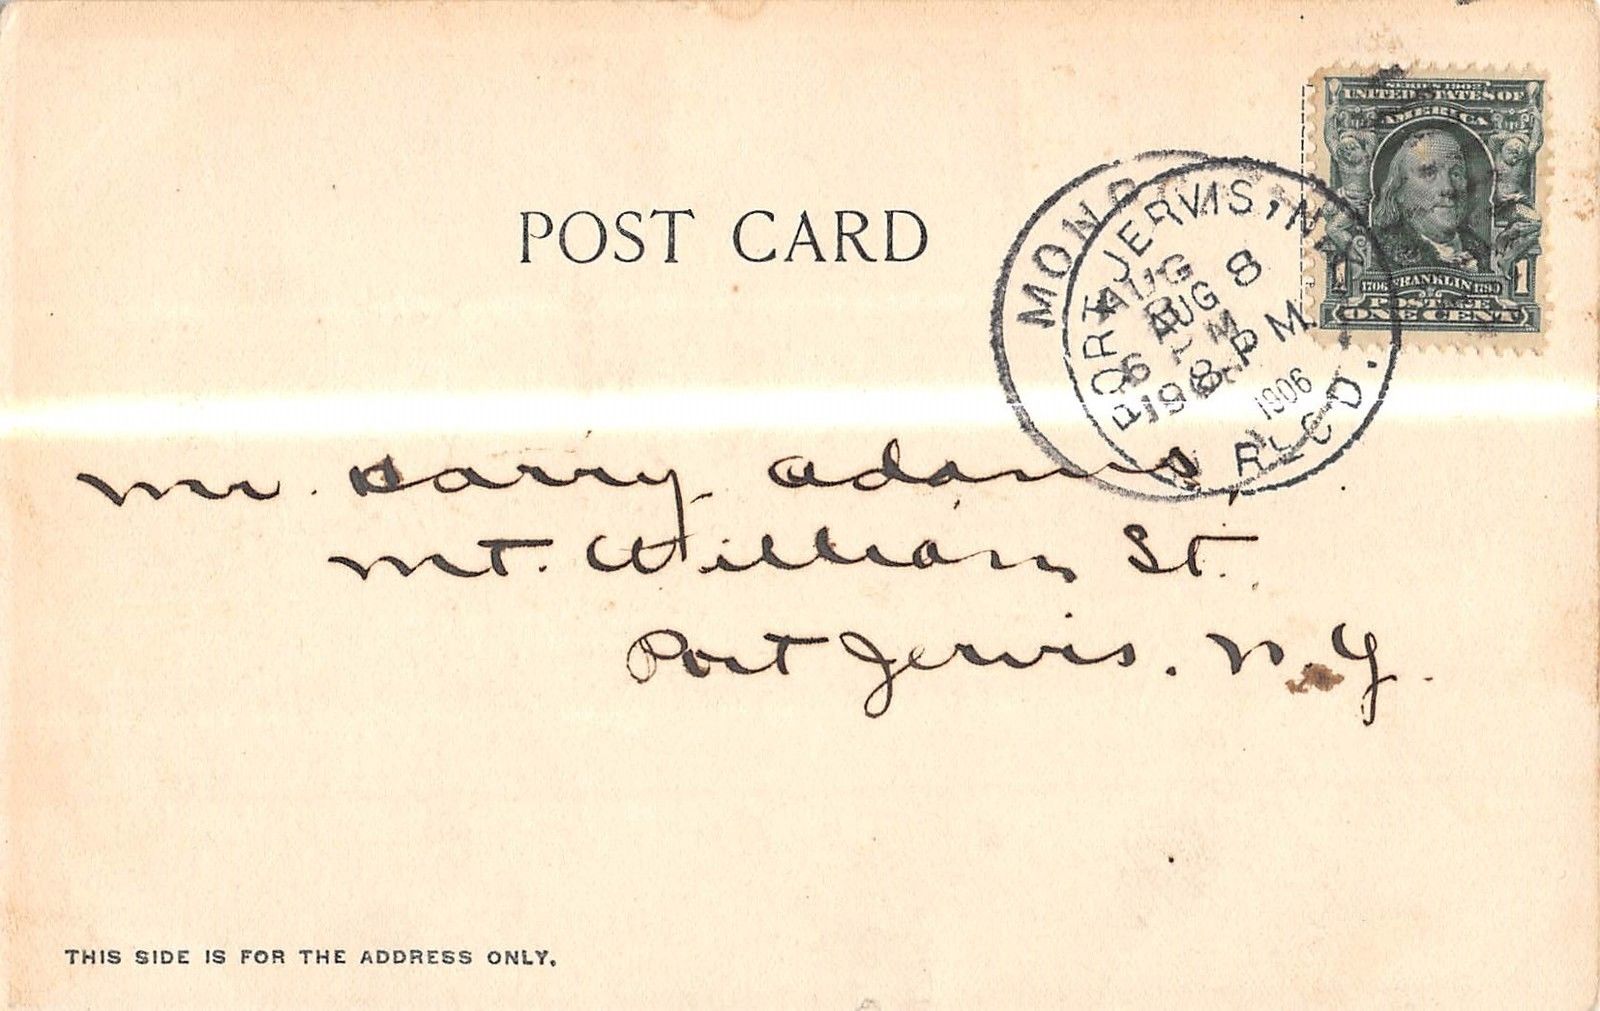 SERIES 1902
UNITED STATES OF
AMERICA
1706 FRANKLIN 1790
POSTAGE
1 1
ONE CENT
POST CARD
PORT JERVIS, N.Y.
AUG 8
8-PM
1906
REC'D.
AUG
8
6 PM
Mr. Harry Adams,
Mt. William St.
Port Jervis. N.Y.
THIS SIDE IS FOR THE ADDRESS ONLY.